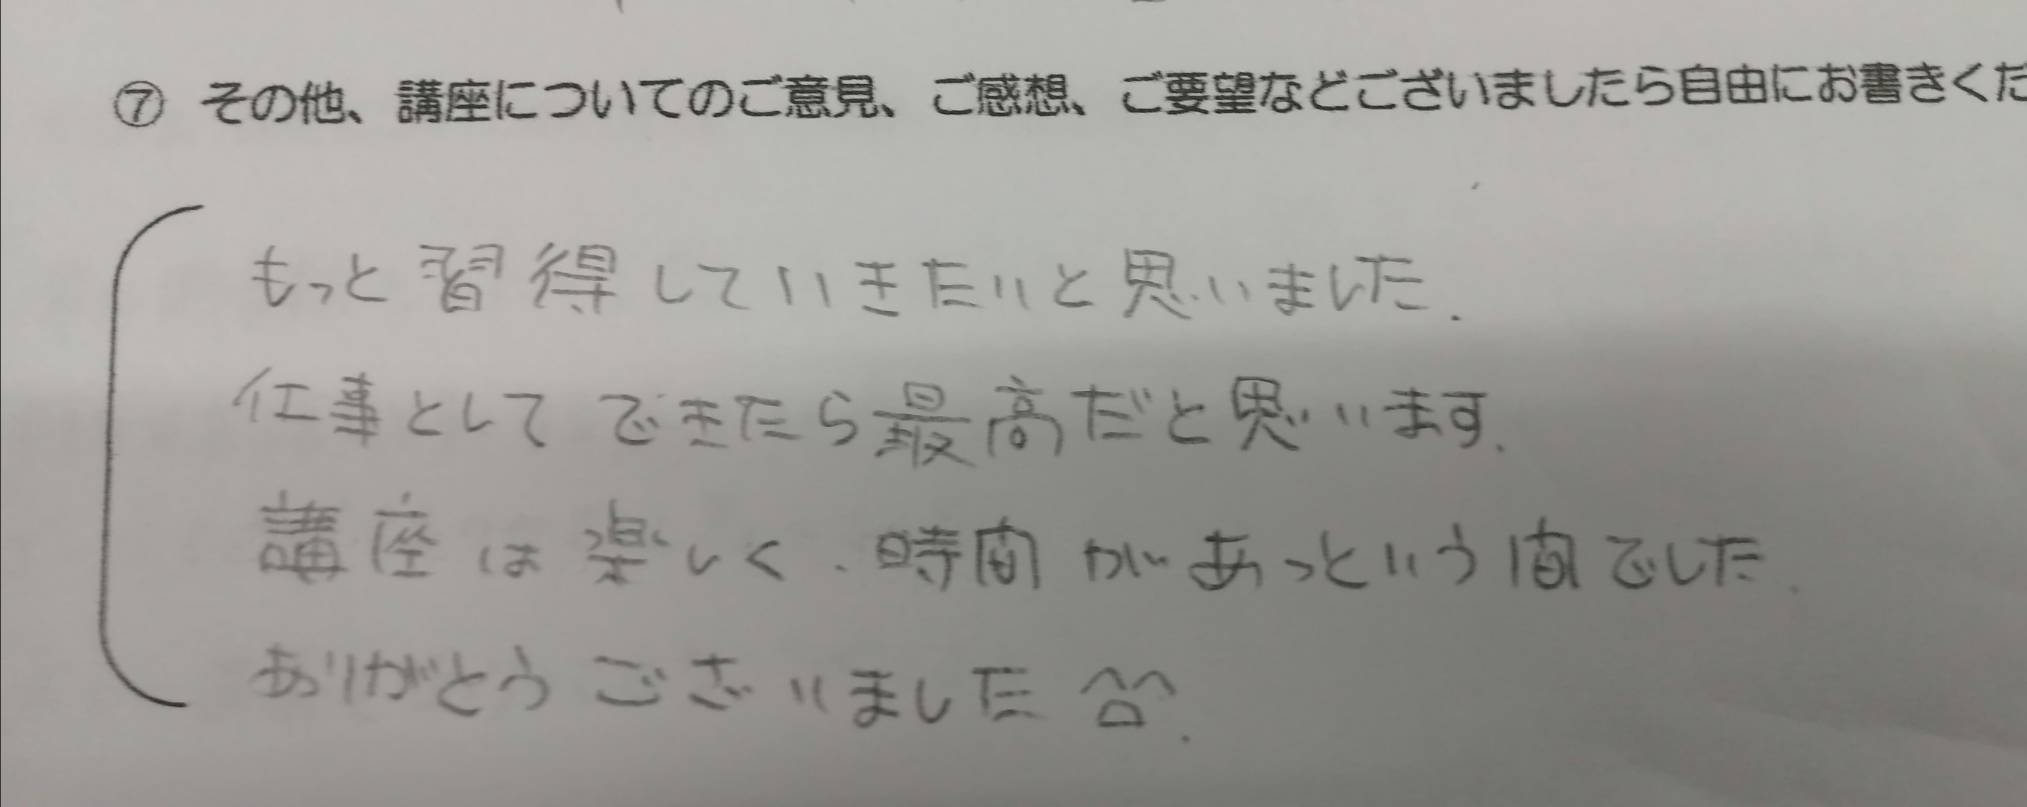 ⑦ その他、講座についてのご意見、ご感想、ご要望などございましたら自由にお書きくだ
もっと習得していきたいと思いました.
仕事としてできたら最高だと思います.
講座は楽しく、時間があっという間でした.
ありがとうございました ^^.